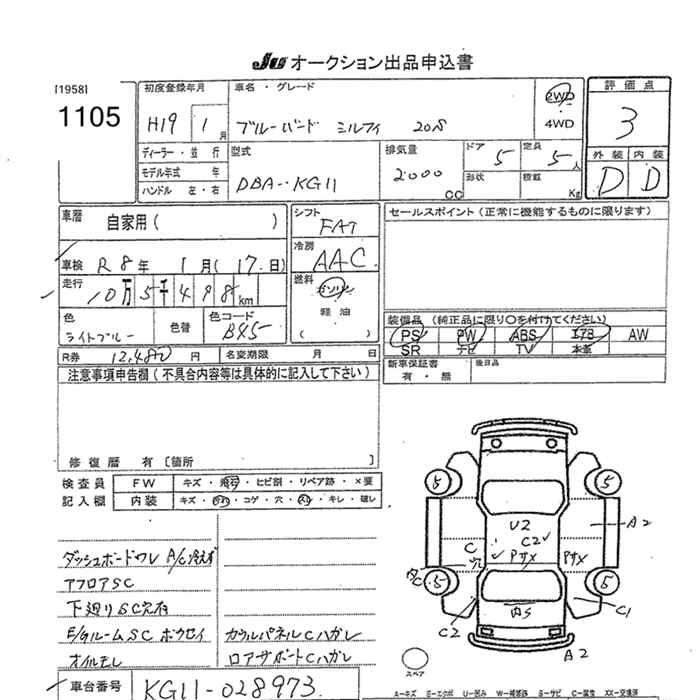 JU オークション出品申込書
[1958]
1105
初度登録年月
H19 1 月
車名・グレード
ブルーバード シルフィ 20S
2WD
4WD
評価点
3
ディーラー・並行
モデル年式 年
ハンドル 左・右
型式
DBA-KG11
排気量
2000 CC
ドア
5
定員
5 人
形状
積載
Kg
外装 内装
D D
車暦
自家用( )
シフト
FAT
セールスポイント (正常に機能するものに限ります)
車検 R8年 1月(17日)
冷房
AAC
走行
10万5千498km
燃料
ガソリン
軽油
( )
色
ライトブルー
色替
色コード
B45
装備品 (純正品に限り○を付けてください)
PS PW ABS エアB AW
SR ナビ TV 本革
R券 12,480 円
名変期限 月 日
新車保証書
有・無
後日品
注意事項申告欄 (不具合内容等は具体的に記入して下さい)
修復暦 有 [箇所 ]
検査員
記入欄
FW キズ・飛石・ヒビ割・リペア跡・×要
内装 キズ・汚れ・コゲ・穴・スレ・キレ・破レ
ダッシュボードワレ A/C冷えず
アフロアSC
下廻りSC穴有
E/グルームSC ボウセイ
オイルモレ
カウルパネルCハガレ
ロアサポートCハガレ
車台番号 KG11-028973
5
5
U2
C2
A2
C
穴
Pサメ
Pサメ
5
5
AC
C2
AS
C1
A2
スペア
A-キズ E-エクボ U-凹み W-補修跡 S-サビ C-腐蝕 XX-交換済